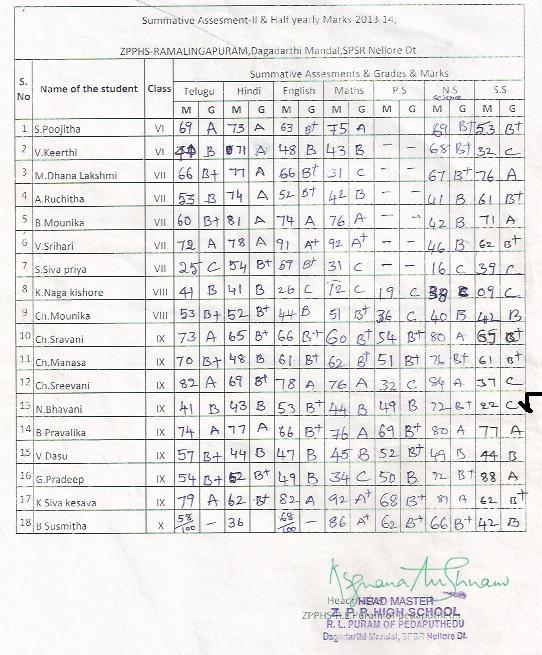 Summative Assesment-II & Half yearly Marks-2013-14,
ZPPHS-RAMALINGAPURAM,Dagadarthi Mandal,SPSR Nellore Dt.
S. No Name of the student Class Summative Assesments & Grades & Marks
Telugu Hindi English Maths P.S N.S Science S.S
M G M G M G M G M G M G M G
1 S.Poojitha VI 69 A 73 A 63 B+ 75 A 69 B+ 53 B+
2 V.Keerthi VI B 71 A 48 B 43 B - - 68 B+ 32 C
3 M.Dhana Lakshmi VII 66 B+ 77 A 66 B+ 31 C - - 67 B+ 76 A
4 A.Ruchitha VII 53 B 74 A 52 B+ 42 B - - 41 B 61 B+
5 B.Mounika VII 60 B+ 81 A 74 A 76 A - - 42 B 71 A
6 V.Srihari VII 72 A 78 A 91 A+ 92 A+ - - 46 B 62 B+
7 S.Siva priya VII 25 C 54 B+ 57 B+ 31 C 16 C 39 C
8 K.Naga kishore VIII 41 B 41 B 26 C 12 C 19 C 09 C
9 Ch.Mounika VIII 53 B+ 52 B+ 44 B 51 B+ 36 C 40 B 42 B
10 Ch.Sravani IX 73 A 65 B+ 66 B+ 60 B+ 54 B+ 80 A 55 B+
11 Ch.Manasa IX 70 B+ 48 B 61 B+ 62 B+ 51 B+ 76 B+ 61 B+
12 Ch.Sreevani IX 82 A 69 B+ 78 A 76 A 32 C 84 A 37 C
13 N.Bhavani IX 41 B 43 B 53 B+ 44 B 49 B 72 B+ 22 C
14 B Pravalika IX 74 A 77 A 66 B+ 76 A 69 B+ 80 A 77 A
15 V Dasu IX 57 B+ 44 B 47 B 45 B 52 B+ 49 B 44 B
16 G.Pradeep IX 54 B+ 52 B+ 49 B 34 C 50 B 72 B+ 88 A
17 K Siva kesava IX 79 A 62 B+ 82 A 92 A+ 68 B+ 81 A 62 B+
18 B Susmitha X 58/100 - 36 68/100 - 86 A+ 62 B+ 66 B+ 42 B
HEAD MASTER
Z. P. P. HIGH SCHOOL
R. L. PURAM OF PEDAPUTHEDU
Dagadarthi Mandal, SPSR Nellore Dt.